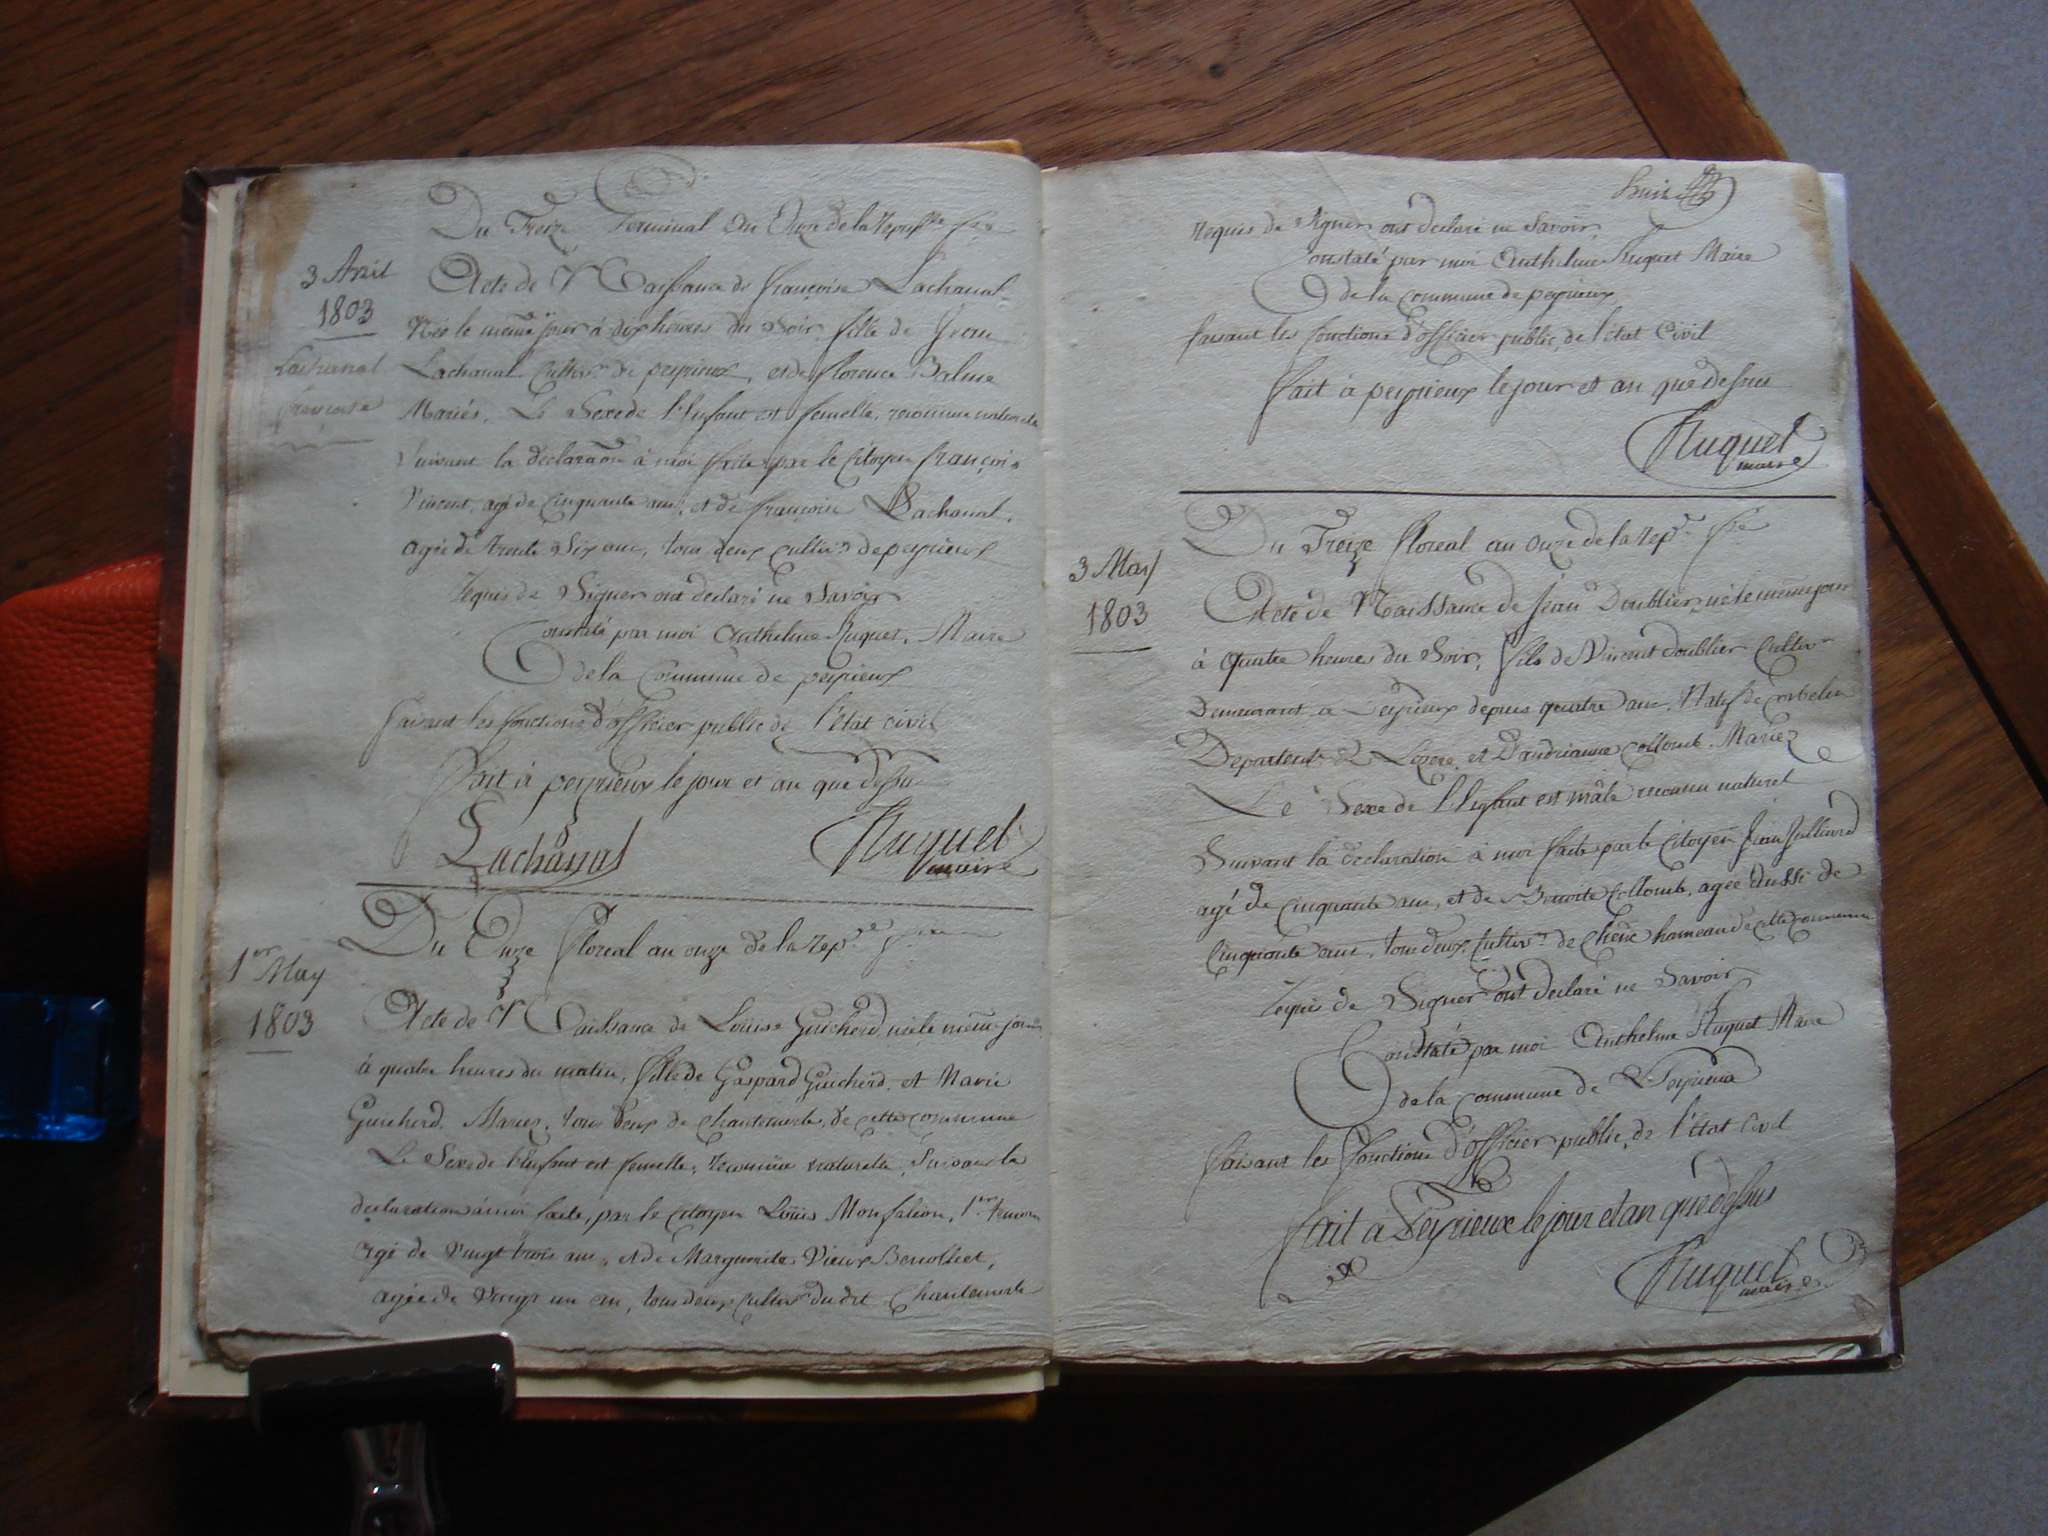 Du Treize Germinal an Onze de la Repub.que fse
3 Avril
1803
Lachanal
françoise
Acte de Naissance de françoise Lachanal
Née le même jour à dix heures du Soir, fille de Jean
Lachanal Cultiv.r de peyrieux, et de florence Balme
Mariés. Le Sexe de l'Enfant est femelle, reconnue naturelle
Suivant la déclaraõn à moi faite par le Citoyen françois
Vincent, agé de Cinquante ans, et de françoise Lachanal,
agée de trente Six ans, tous deux cultiv.rs de peyrieux
Requis de Signer ont déclaré ne Savoir
Constaté par moi Anthelme Ruquet, Maire
de la Commune de peyrieux
faisant les fonctions d'officier public de l'état civil
fait à peyrieux le jour et an que dessus
Lachanal Ruquet
maire
Du Onze floreal an onze de la rep.e
1er May
1803
Acte de Naissance de Louise Guicherd née le même jour
à quatre heures du matin, fille de Gaspard Guicherd et Marie
Guicherd Mariez, tous deux de Chantemerle, de cette commune
Le Sexe de l'Enfant est femelle, reconnüe naturelle, Suivant la
declaration à moi faite, par le Citoyen Loüis Monfalcon, 1er temoin
agé de vingt trois ans, et de Marguerite Vieux Benolliet,
agée de vingt un an, tous deux Cultiv.rs du dit Chantemerle
huit
Requis de Signer ont déclaré ne Savoir
Constaté par moi Anthelme Ruquet Maire
de la Commune de peyrieux
faisant les fonctions d'officier public de l'état Civil
fait à peyrieux le jour et an que dessus
Ruquet
maire
Du Treize floreal an onze de la rep.e fse
3 May
1803
Acte de Naissance de Jean Doublier, né le même jour
à quatre heures du Soir, fils de Vincent doublier Cultiv.r
Demeurant à Peyrieux depuis quatre ans, Natif de Corbelin
Département de L'izere, et D'andrianne Collomb, Mariez
Le Sexe de l'Enfant est mâle reconnu naturel
Suivant la déclaration à moi faite par le Citoyen Jean Julliard
agé de Cinquante ans, et de Benoite Collomb, agée aussi de
Cinquante ans, tous deux Cultiv.rs de hameau de cette commune
Requis de Signer ont declaré ne Savoir
Constaté par moi Anthelme Ruquet Maire
de la Commune de Peyrieux
faisant les fonctions d'officier public, de l'Etat Civil
fait à Peyrieux le jour et an que dessus
Ruquet
maire